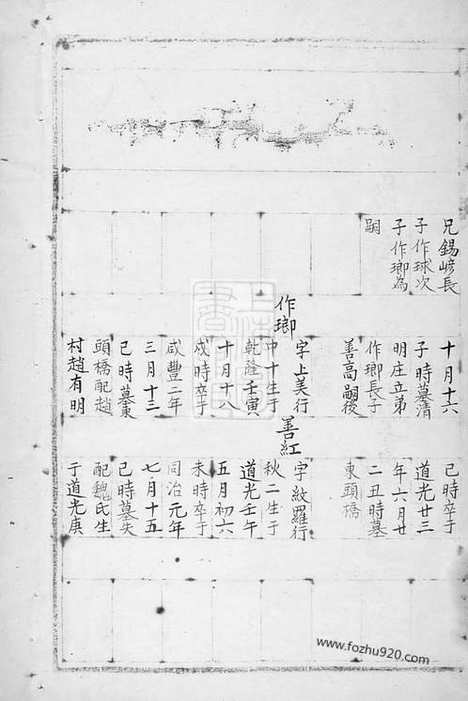 兄錫嵃長
子作球次
子作瑯為
嗣
十月十六
子時墓清
明庄立弟
作瑯長子
善高嗣後
巳時卒于
道光廿三
年六月廿
二丑時墓
東頭橋
作瑯
字上美行
中十生于
乾隆壬寅
十月十八
戌時卒于
咸豐二年
三月十三
巳時墓東
頭橋配趙
村趙有明
善紅
字紋羅行
秋二生于
道光壬午
五月初六
未時卒于
同治元年
七月十五
巳時墓失
配魏氏生
于道光庚
www.fozhu920.com